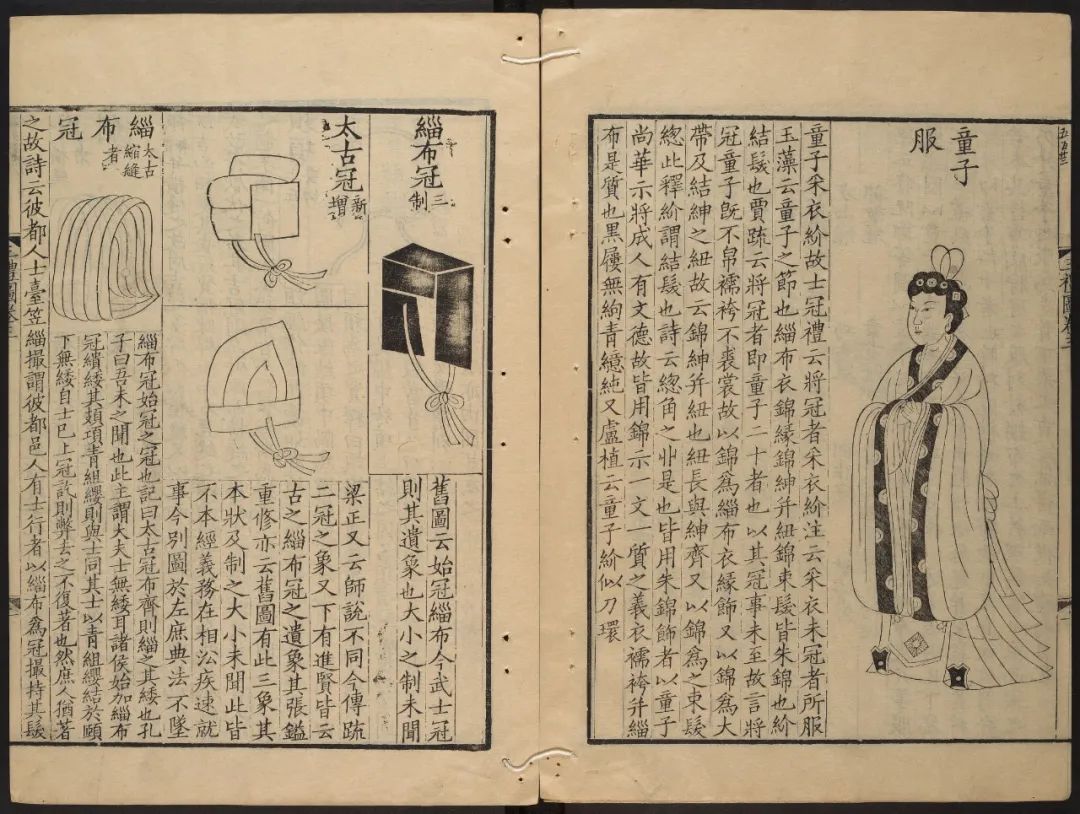 童子
服
童子采衣紒故士冠禮云將冠者采衣紒注云采衣未冠者所服
玉藻云童子之節也緇布衣錦緣錦紳并紐錦束髮皆朱錦也紒
結髮也賈疏云將冠者即童子二十者也以其冠事未至故言將
冠童子既不帛襦袴不裘裳故以錦為緇布衣緣飾又以錦為大
帶及結紳之紐故云錦紳并紐也紐長與紳齊又以錦為之束髮
緫此釋紒謂結髮也詩云緫角之丱是也皆用朱錦飾者以童子
尚華示將成人有文德故皆用錦示一文一質之義衣襦袴并緇
布是質也黑屨無絇青繶純又盧植云童子紒似刀環
緇布冠三制
舊圖云始冠緇布今武士冠
則其遺象也大小之制未聞
太古冠新增
梁正又云師說不同今傳疏
二冠之象又下有進賢皆云
古之緇布冠之遺象其張鎰
重修亦云舊圖有此三象其
本狀及制之大小未聞此皆
不本經義務在相沿疾速就
事今別圖於左庶典法不墜
緇布冠太古縮縫者
緇布冠始冠之冠也記曰太古冠布齊則緇之其緌也孔
子曰吾未之聞也此主謂大夫士無緌耳諸侯始加緇布
冠繢緌其頍項青組纓則與士同其士以青組纓結於頤
下無緌自士巳上冠訖則弊去之不復著也然庶人猶著
之故詩云彼都人士臺笠緇撮謂彼都邑人有士行者以緇布為冠撮持其髮